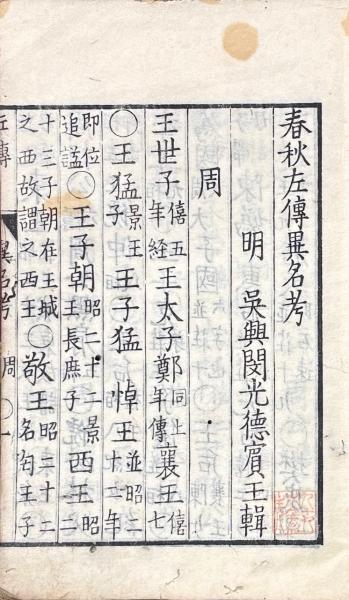 春秋左傳異名考
明 吳興閔光德賓王輯
周
王世子僖五年經王太子鄭同上年傳襄王僖七
○王猛景王子王子猛悼王並昭二十二年
即位追諡○王子朝昭二十二景王長庶子西王昭二
十三子朝在王城之西故謂之西王○敬王昭二十二名匄王子
左傳 異名考 周 ○一